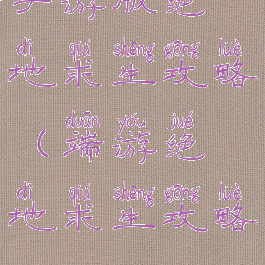 手游版绝
dì qiú shēng gōng lüè
地求生攻略
duān yóu jué
(端游绝
dì qiú shēng gōng lüè
地求生攻略